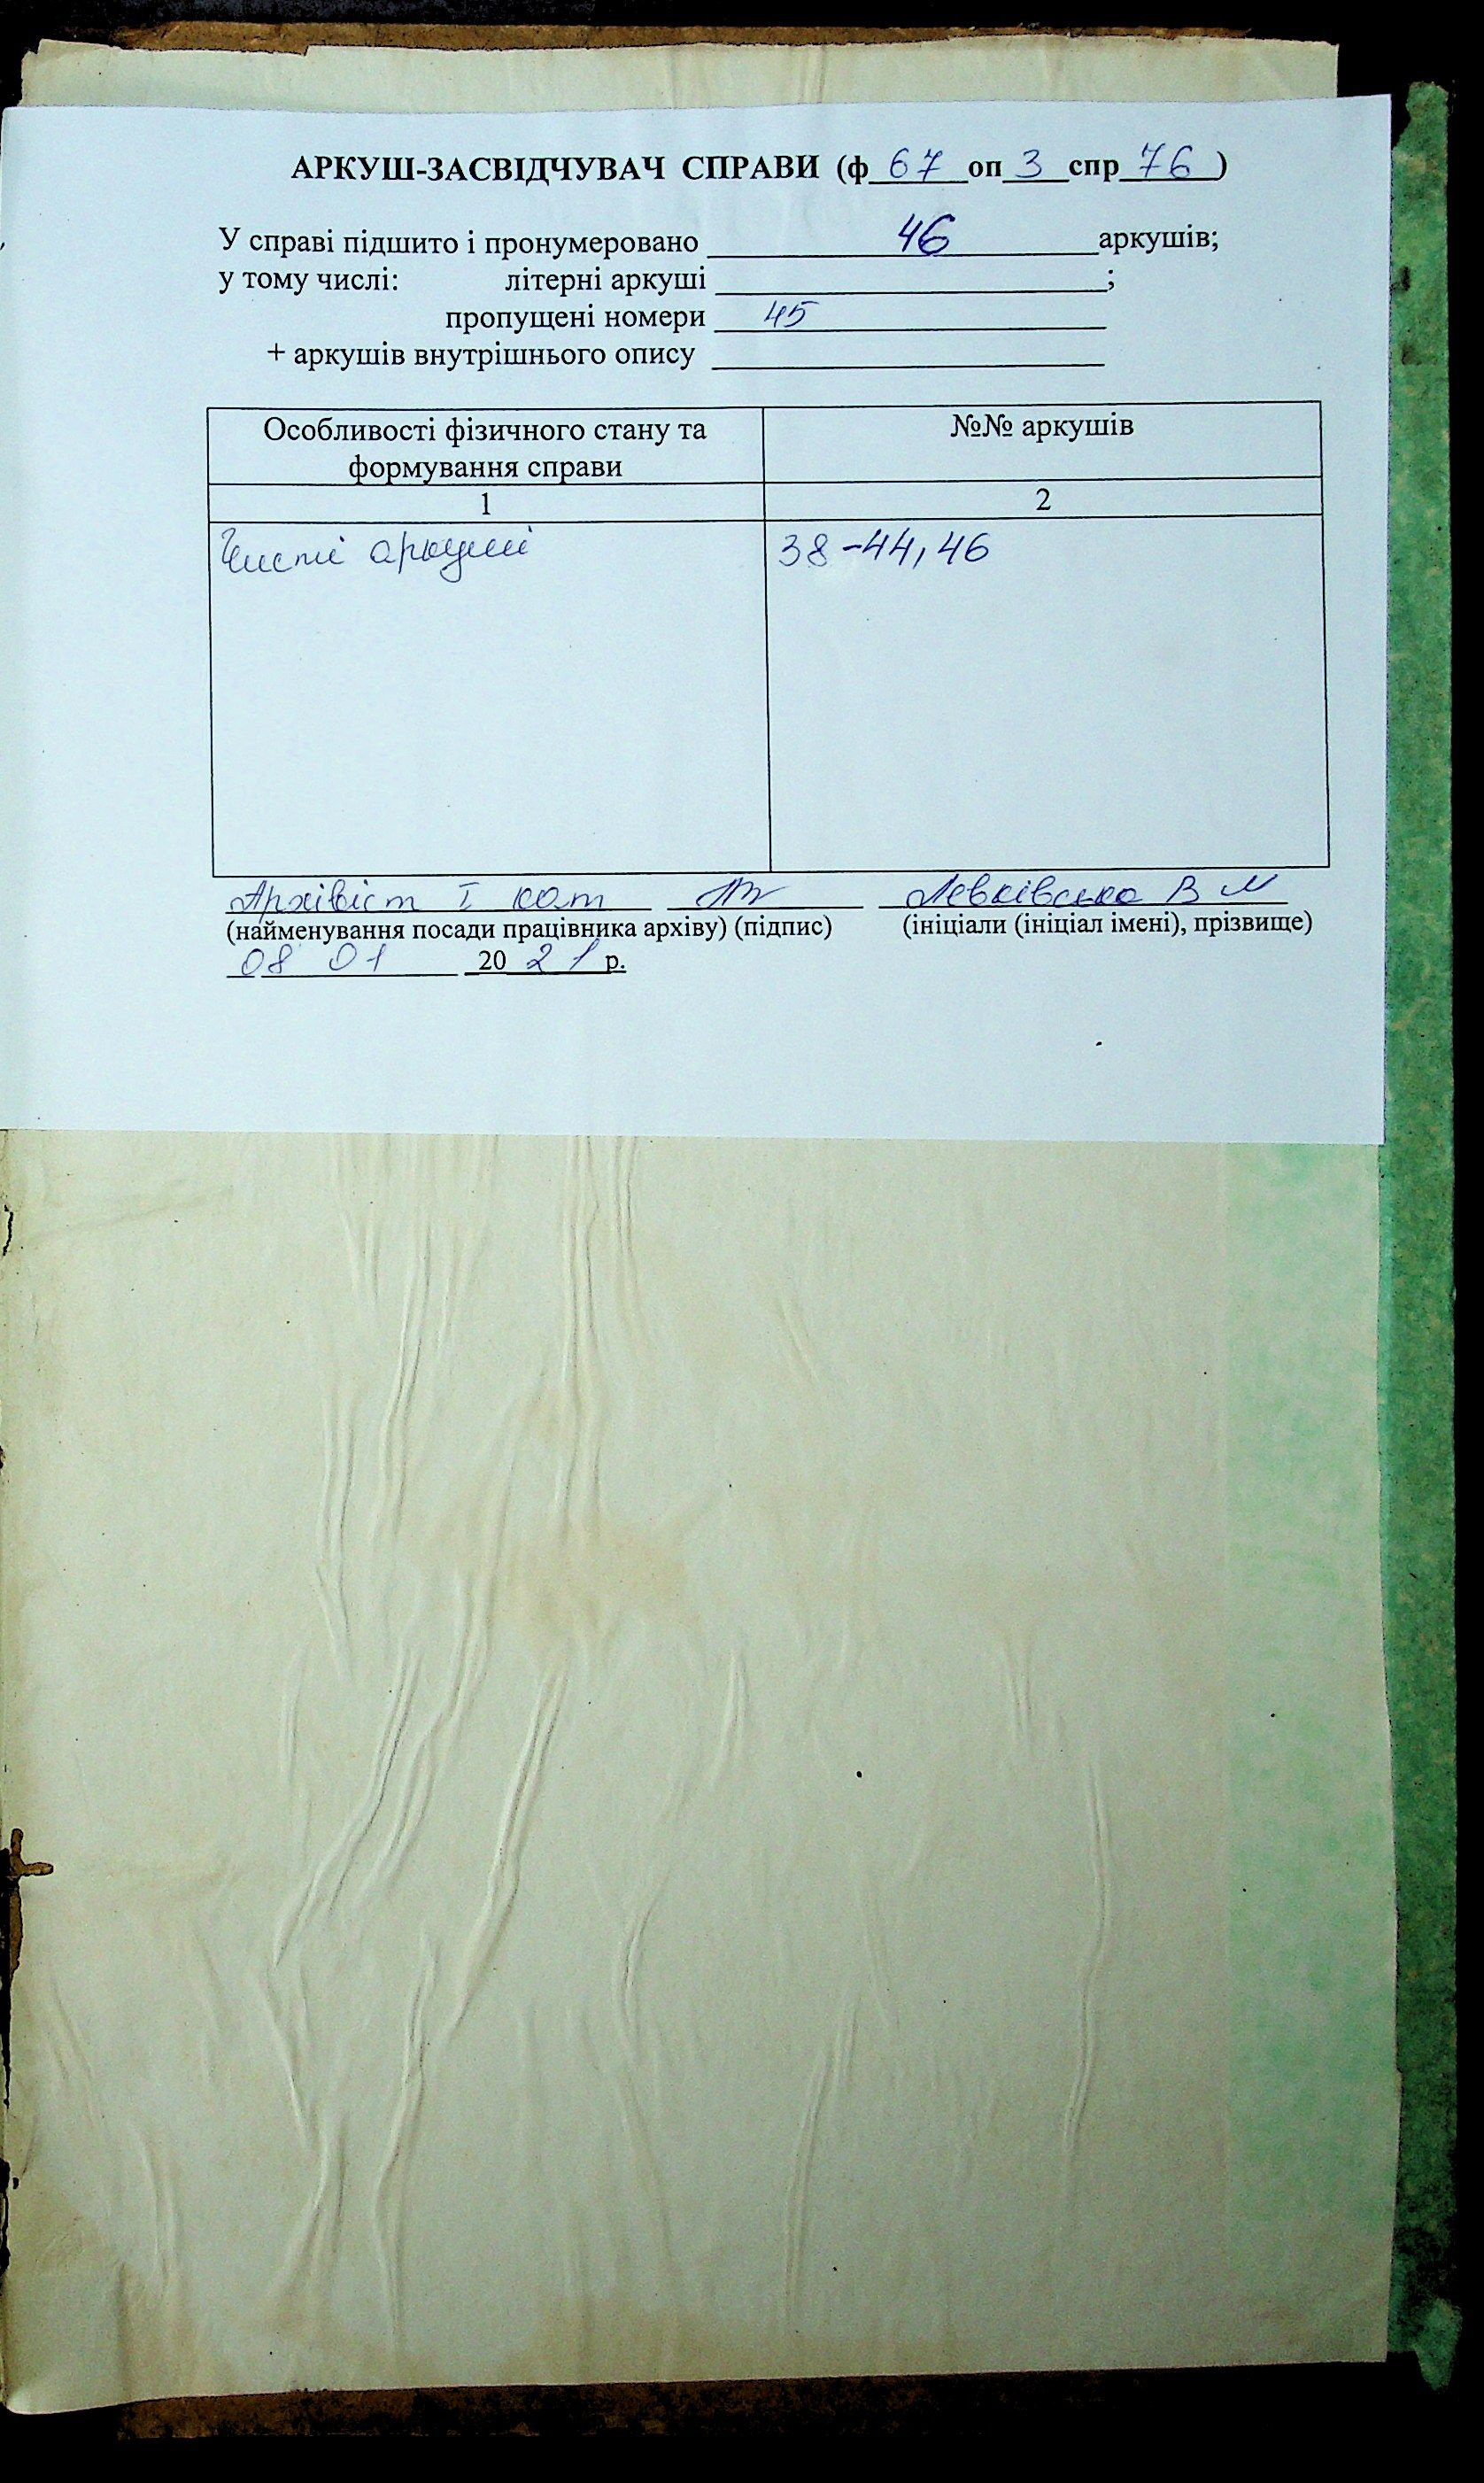 АРКУШ-ЗАСВІДЧУВАЧ СПРАВИ (ф 67 оп 3 спр 76 )
У справі підшито і пронумеровано 46 аркушів;
у тому числі: літерні аркуші ;
пропущені номери 45
+ аркушів внутрішнього опису
Особливості фізичного стану та
формування справи
№№ аркушів
1
2
Чисті аркуші
38-44, 46
Архівіст І кат Левківська В М
(найменування посади працівника архіву) (підпис) (ініціали (ініціал імені), прізвище)
08 01 20 21 р.